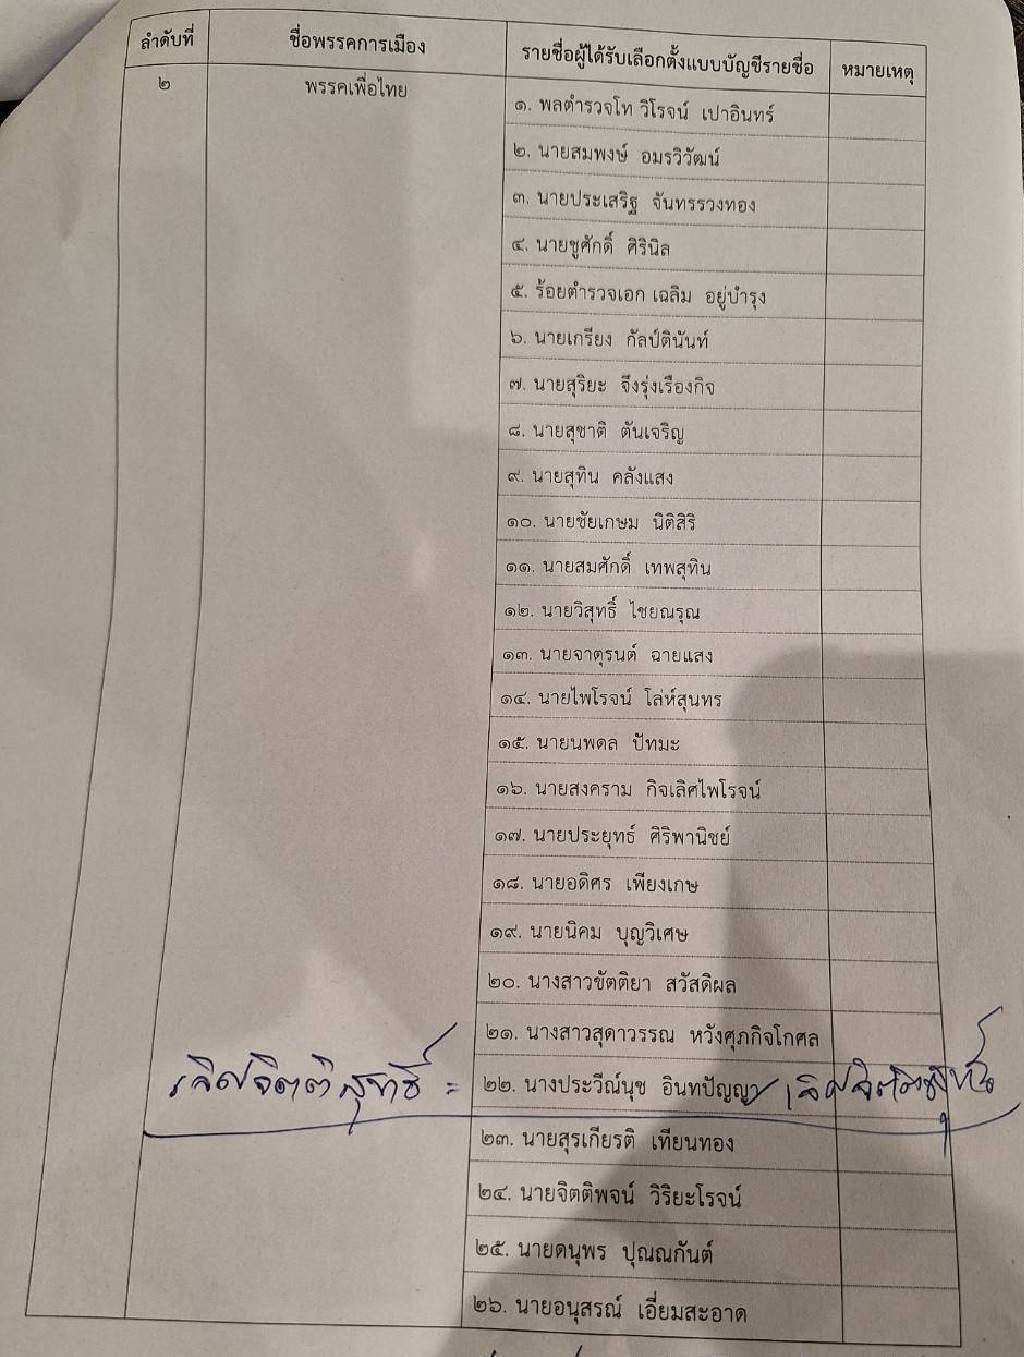 ลำดับที่ ชื่อพรรคการเมือง รายชื่อผู้ได้รับเลือกตั้งแบบบัญชีรายชื่อ หมายเหตุ
๒ พรรคเพื่อไทย
๑. พลตำรวจโท วิโรจน์ เปาอินทร์
๒. นายสมพงษ์ อมรวิวัฒน์
๓. นายประเสริฐ จันทรรวงทอง
๔. นายชูศักดิ์ ศิรินิล
๕. ร้อยตำรวจเอก เฉลิม อยู่บำรุง
๖. นายเกรียง กัลป์ตินันท์
๗. นายสุริยะ จึงรุ่งเรืองกิจ
๘. นายสุชาติ ตันเจริญ
๙. นายสุทิน คลังแสง
๑๐. นายชัยเกษม นิติสิริ
๑๑. นายสมศักดิ์ เทพสุทิน
๑๒. นายวิสุทธิ์ ไชยณรุณ
๑๓. นายจาตุรนต์ ฉายแสง
๑๔. นายไพโรจน์ โล่ห์สุนทร
๑๕. นายนพดล ปัทมะ
๑๖. นายสงคราม กิจเลิศไพโรจน์
๑๗. นายประยุทธ์ ศิริพานิชย์
๑๘. นายอดิศร เพียงเกษ
๑๙. นายนิคม บุญวิเศษ
๒๐. นางสาวขัตติยา สวัสดิผล
๒๑. นางสาวสุดาวรรณ หวังศุภกิจโกศล
๒๒. นางประวีณ์นุช อินทปัญญา
๒๓. นายสุรเกียรติ เทียนทอง
๒๔. นายจิตติพจน์ วิริยะโรจน์
๒๕. นายดนุพร ปุณณกันต์
๒๖. นายอนุสรณ์ เอี่ยมสะอาด